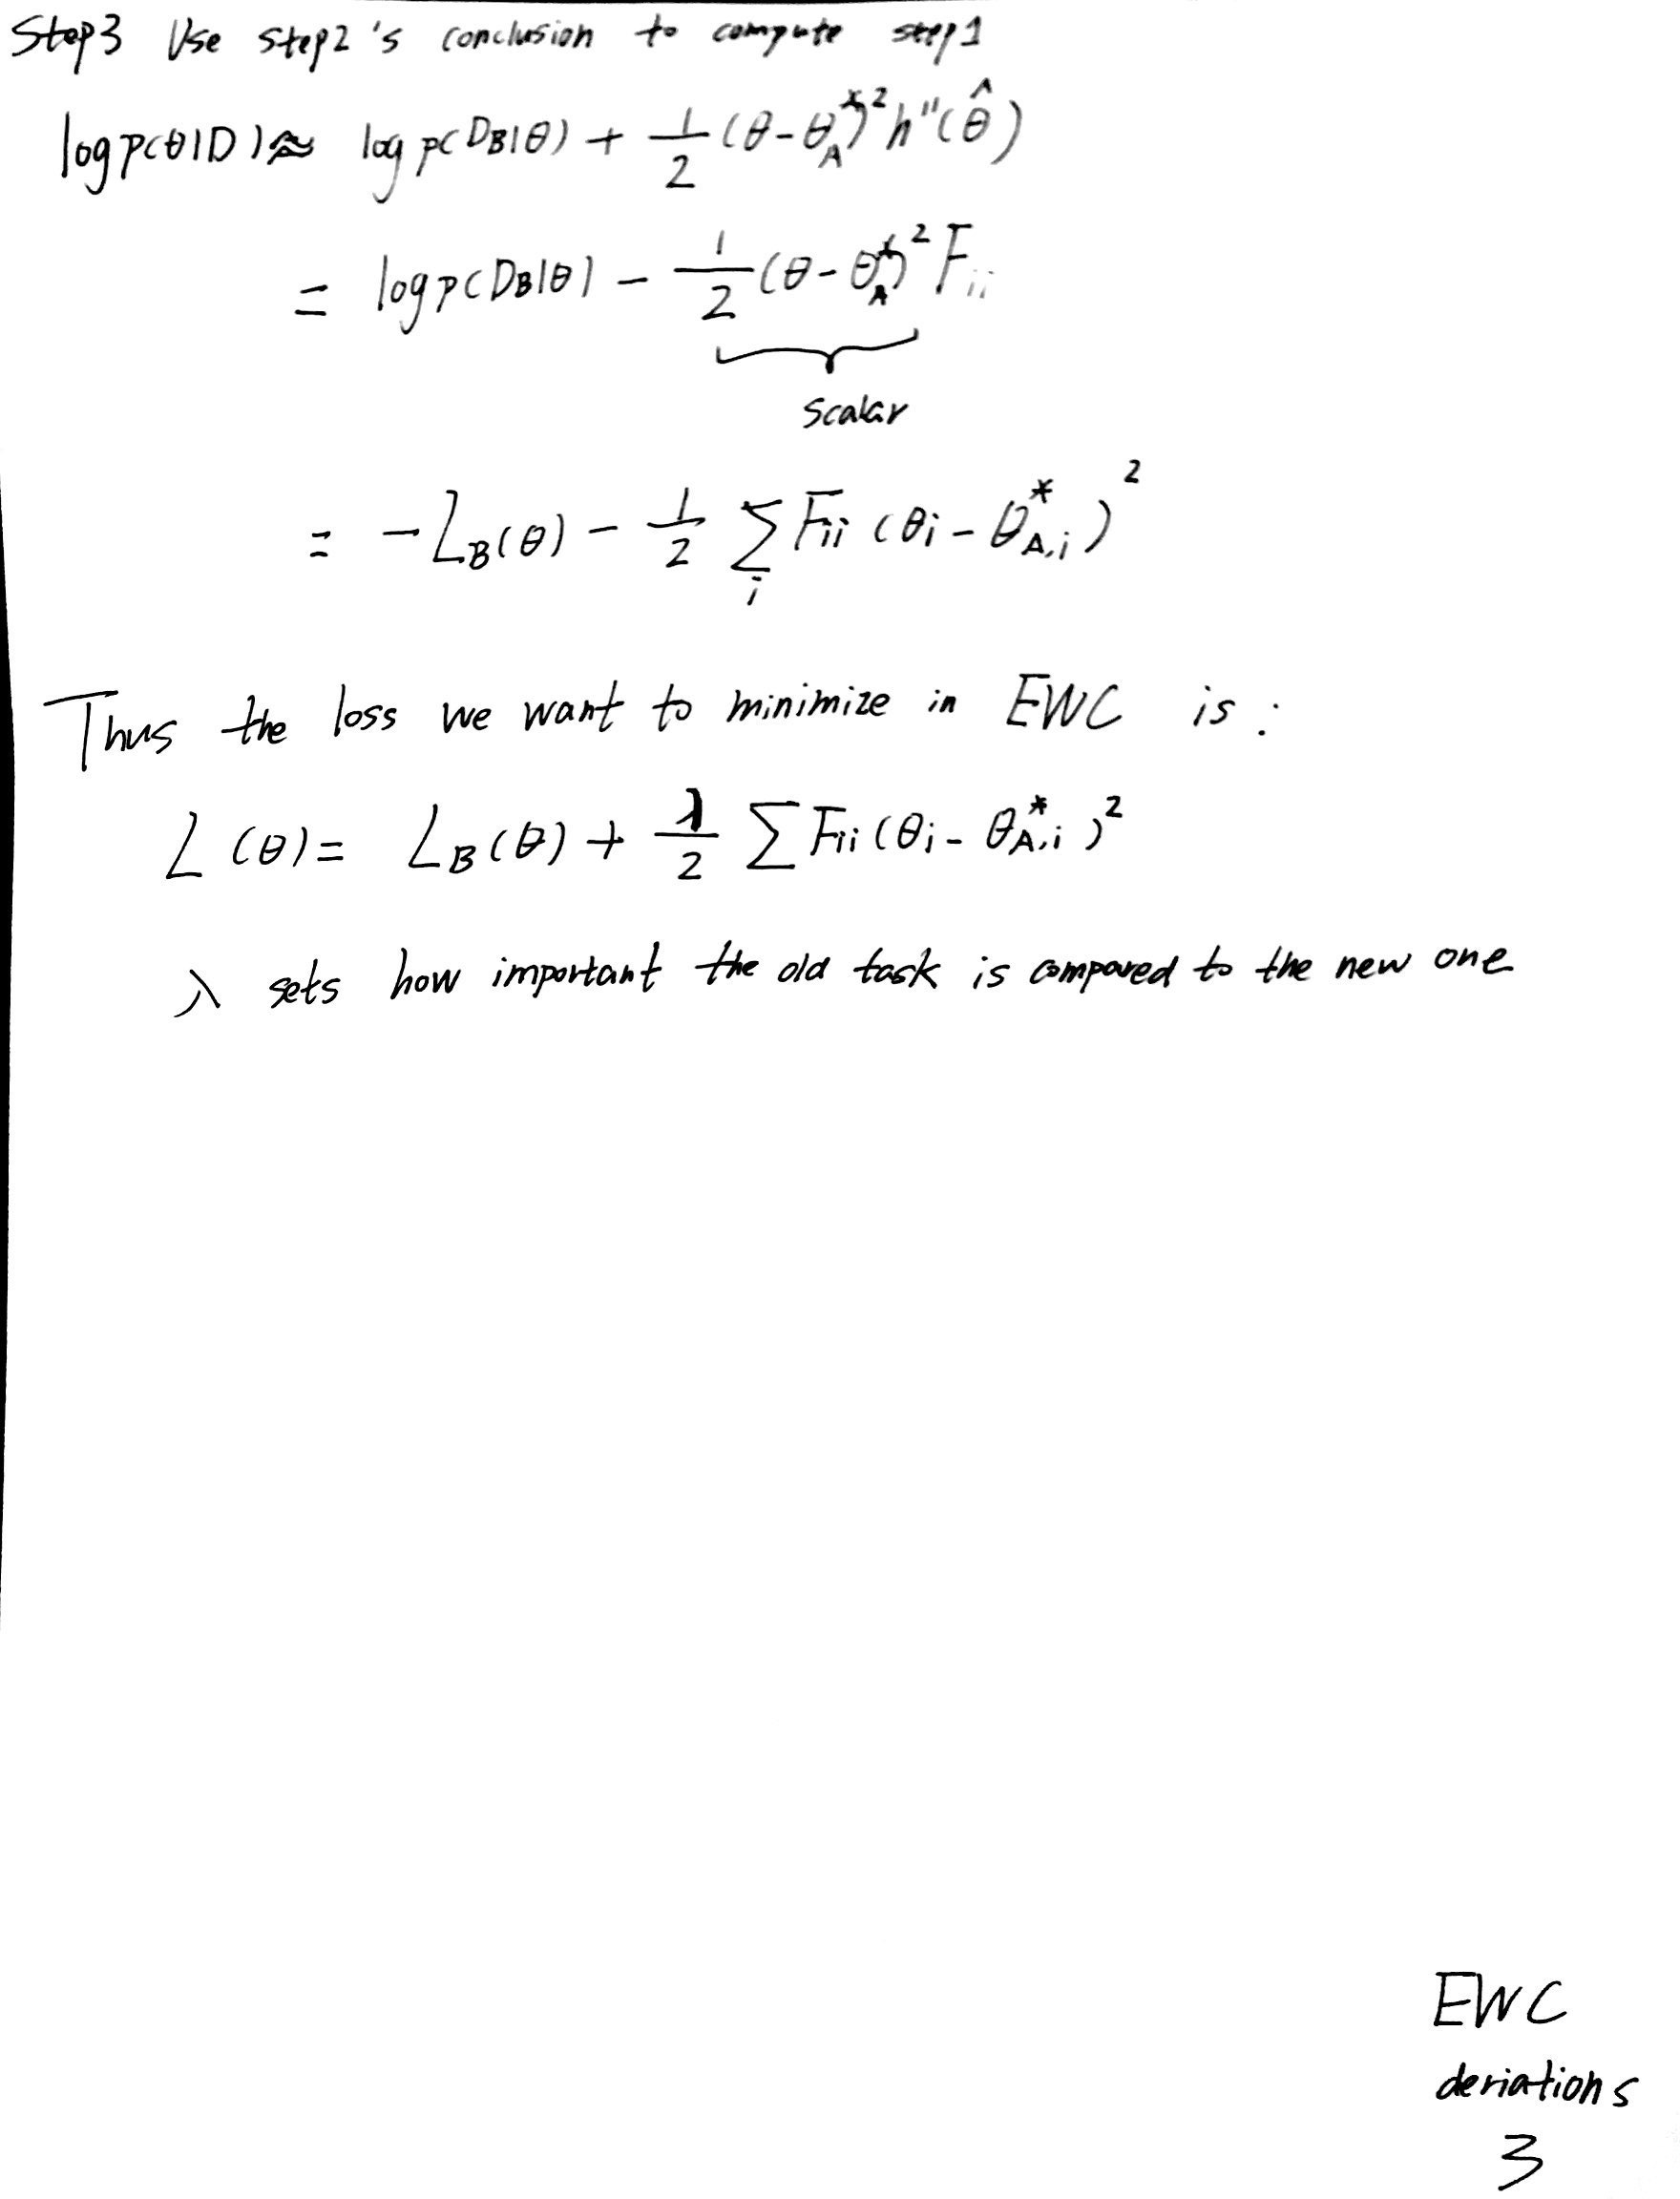 Step3 Use step2's conclusion to compute step1
log p(θ|D) ≈ log p(D_B|θ) + 1/2 (θ - θ_A^*)^2 h''(θ̂)
= log p(D_B|θ) - 1/2 (θ - θ_A^*)^2 F_ii
scalar
= - L_B(θ) - 1/2 ∑_i F_ii (θ_i - θ_A,i^*)^2
Thus the loss we want to minimize in EWC is :
L(θ) = L_B(θ) + λ/2 ∑ F_ii (θ_i - θ_A,i^*)^2
λ sets how important the old task is compared to the new one
EWC
deriations
3